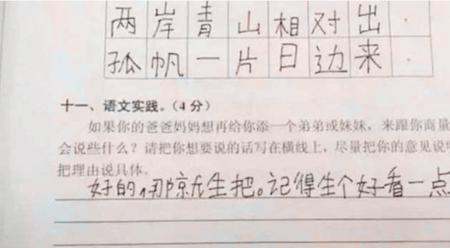 两岸青山相对出
孤帆一片日边来
十一、语文实践。(4分)
如果你的爸爸妈妈想再给你添一个弟弟或妹妹，来跟你商量
会说些什么？请把你想要说的话写在横线上，尽量把你的意见说
把理由说具体。
好的，那就生把。记得生个好看一点